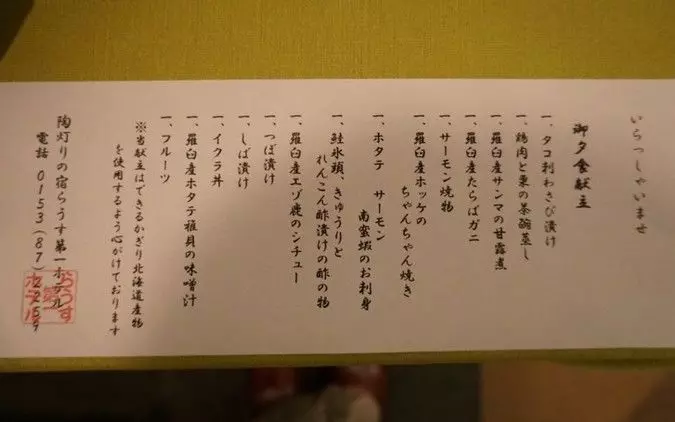 いらっしゃいませ
御夕食献立
一、タコ刺わさび漬け
一、鶏肉と栗の茶碗蒸し
一、羅臼産サンマの甘露煮
一、羅臼産たらばガニ
一、サーモン焼物
一、羅臼産ホッケの
ちゃんちゃん焼き
一、ホタテ サーモン
南蛮蝦のお刺身
一、鮭氷頭、きゅうりと
れんこん酢漬けの酢の物
一、羅臼産エゾ鹿のシチュー
一、つぼ漬け
一、しば漬け
一、イクラ丼
一、羅臼産ホタテ稚貝の味噌汁
一、フルーツ
※当献立はできるかぎり北海道産物
を使用するよう心がけております
陶灯りの宿らうす第一ホテル
電話 0153(87)2259
らうす
第一
ホテル